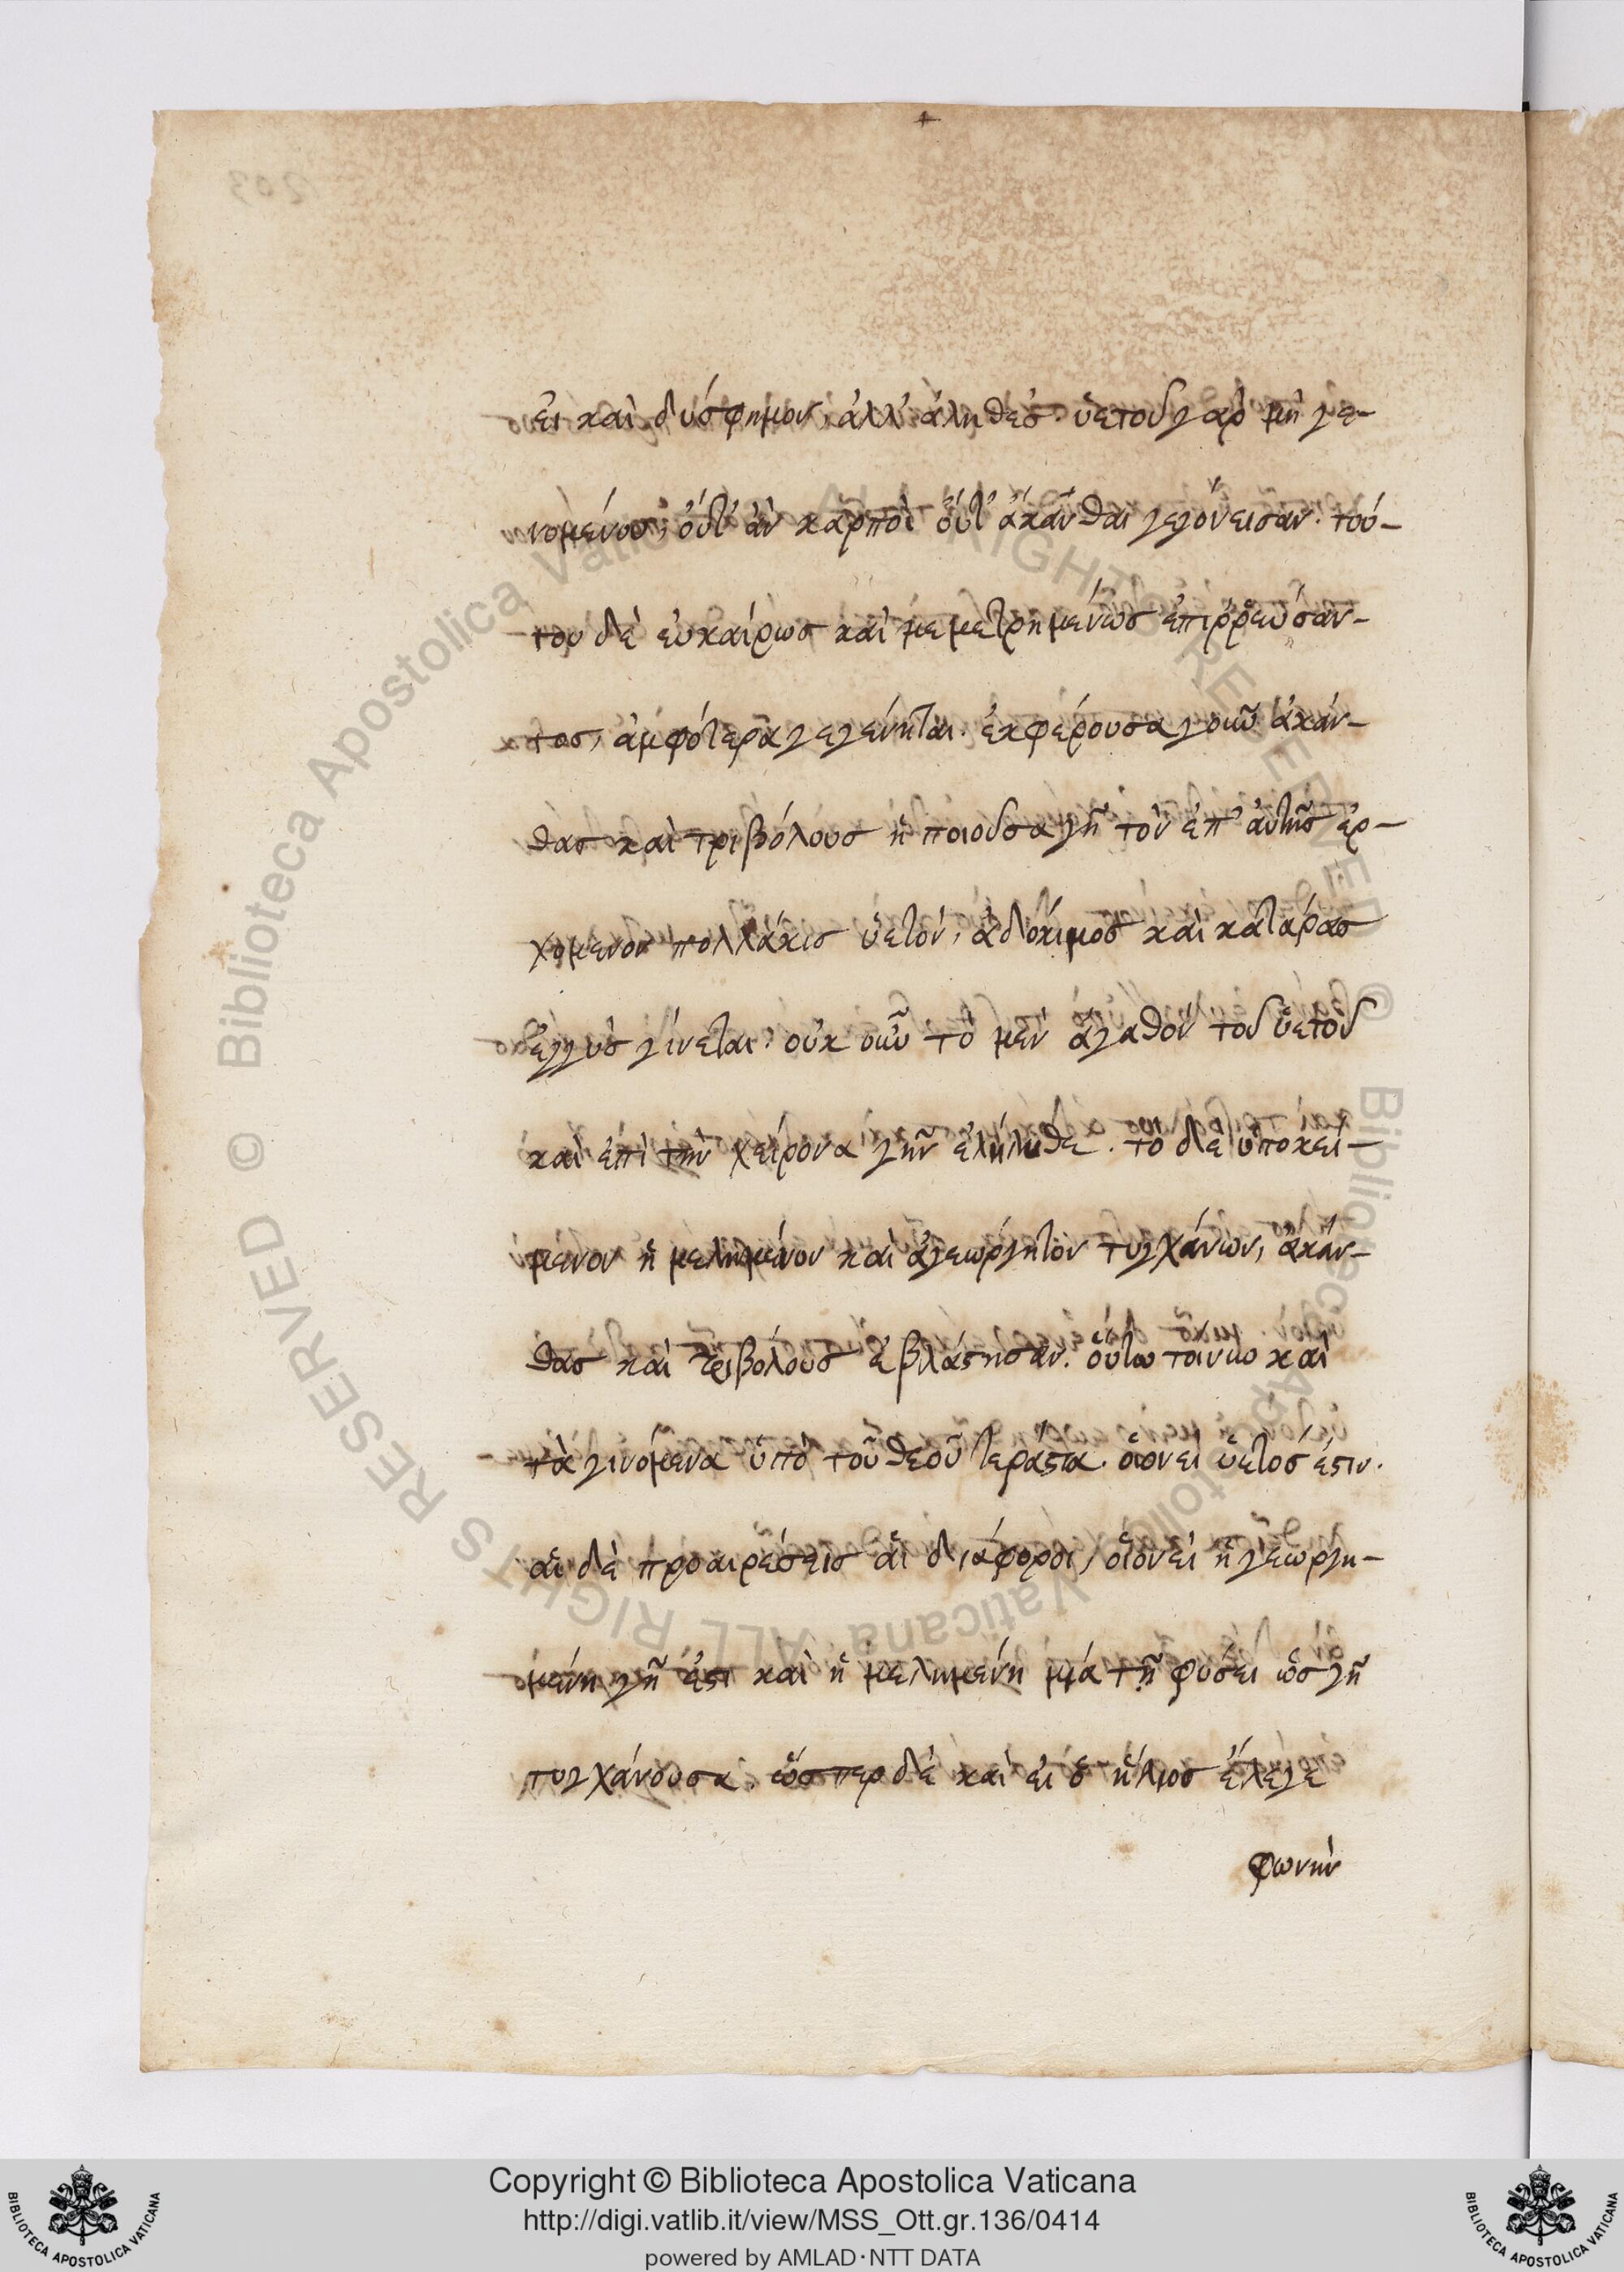 εἰ καὶ δύσφημον, ἀλλ' ἀληθές. ὑετοῦ γὰρ μὴ γε-
νομένου, οὔτ' ἂν καρποὶ οὔτ' ἄκανθαι γεγόνεισαν. τού-
του δὲ εὐκαίρως καὶ μεμετρημένως ἐπιῤῥεύσαν-
τος, ἀμφότερα γεγένηται. ἐκφέρουσα γοῦν ἀκάν-
θας καὶ τριβόλους ἡ ποιοῦσα γῆ τὸν ἐπ' αὐτῆς ἐρ-
χόμενον πολλάκις ὑετόν, ἀδόκιμος καὶ κατάρας
ἐγγὺς γίνεται. οὐκ οὖν τὸ μὲν ἀγαθὸν τοῦ ὑετοῦ
καὶ ἐπὶ τὴν χείρονα γῆν ἐλήλυθε. τὸ δὲ ὑποκεί-
μενον ἠμελημένον καὶ ἀγεώργητον τυγχάνων, ἀκάν-
θας καὶ τριβόλους ἐβλάστησαν. οὕτω τοίνυν καὶ
τὰ γινόμενα ὑπὸ τοῦ θεοῦ τεράστια. οἱονεὶ ὑετός ἐστιν.
αἱ δὲ προαιρέσεις αἱ διάφοροι, οἱονεὶ ἡ γεωργη-
μένη γῆ ἐστι καὶ ἡ μελημένη μία τῇ φύσει ὡς γῆ
τυγχάνουσα. ὥσπερ δὲ καὶ εἰ ὁ ἥλιος ἔλεγε
φωνὴν
Copyright © Biblioteca Apostolica Vaticana
http://digi.vatlib.it/view/MSS_Ott.gr.136/0414
powered by AMLAD·NTT DATA
BIBLIOTECA APOSTOLICA VATICANA
BIBLIOTECA APOSTOLICA VATICANA
© Biblioteca Apostolica Vaticana ALL RIGHTS RESERVED © Biblioteca Apostolica Vaticana ALL RIGHTS RESERVED